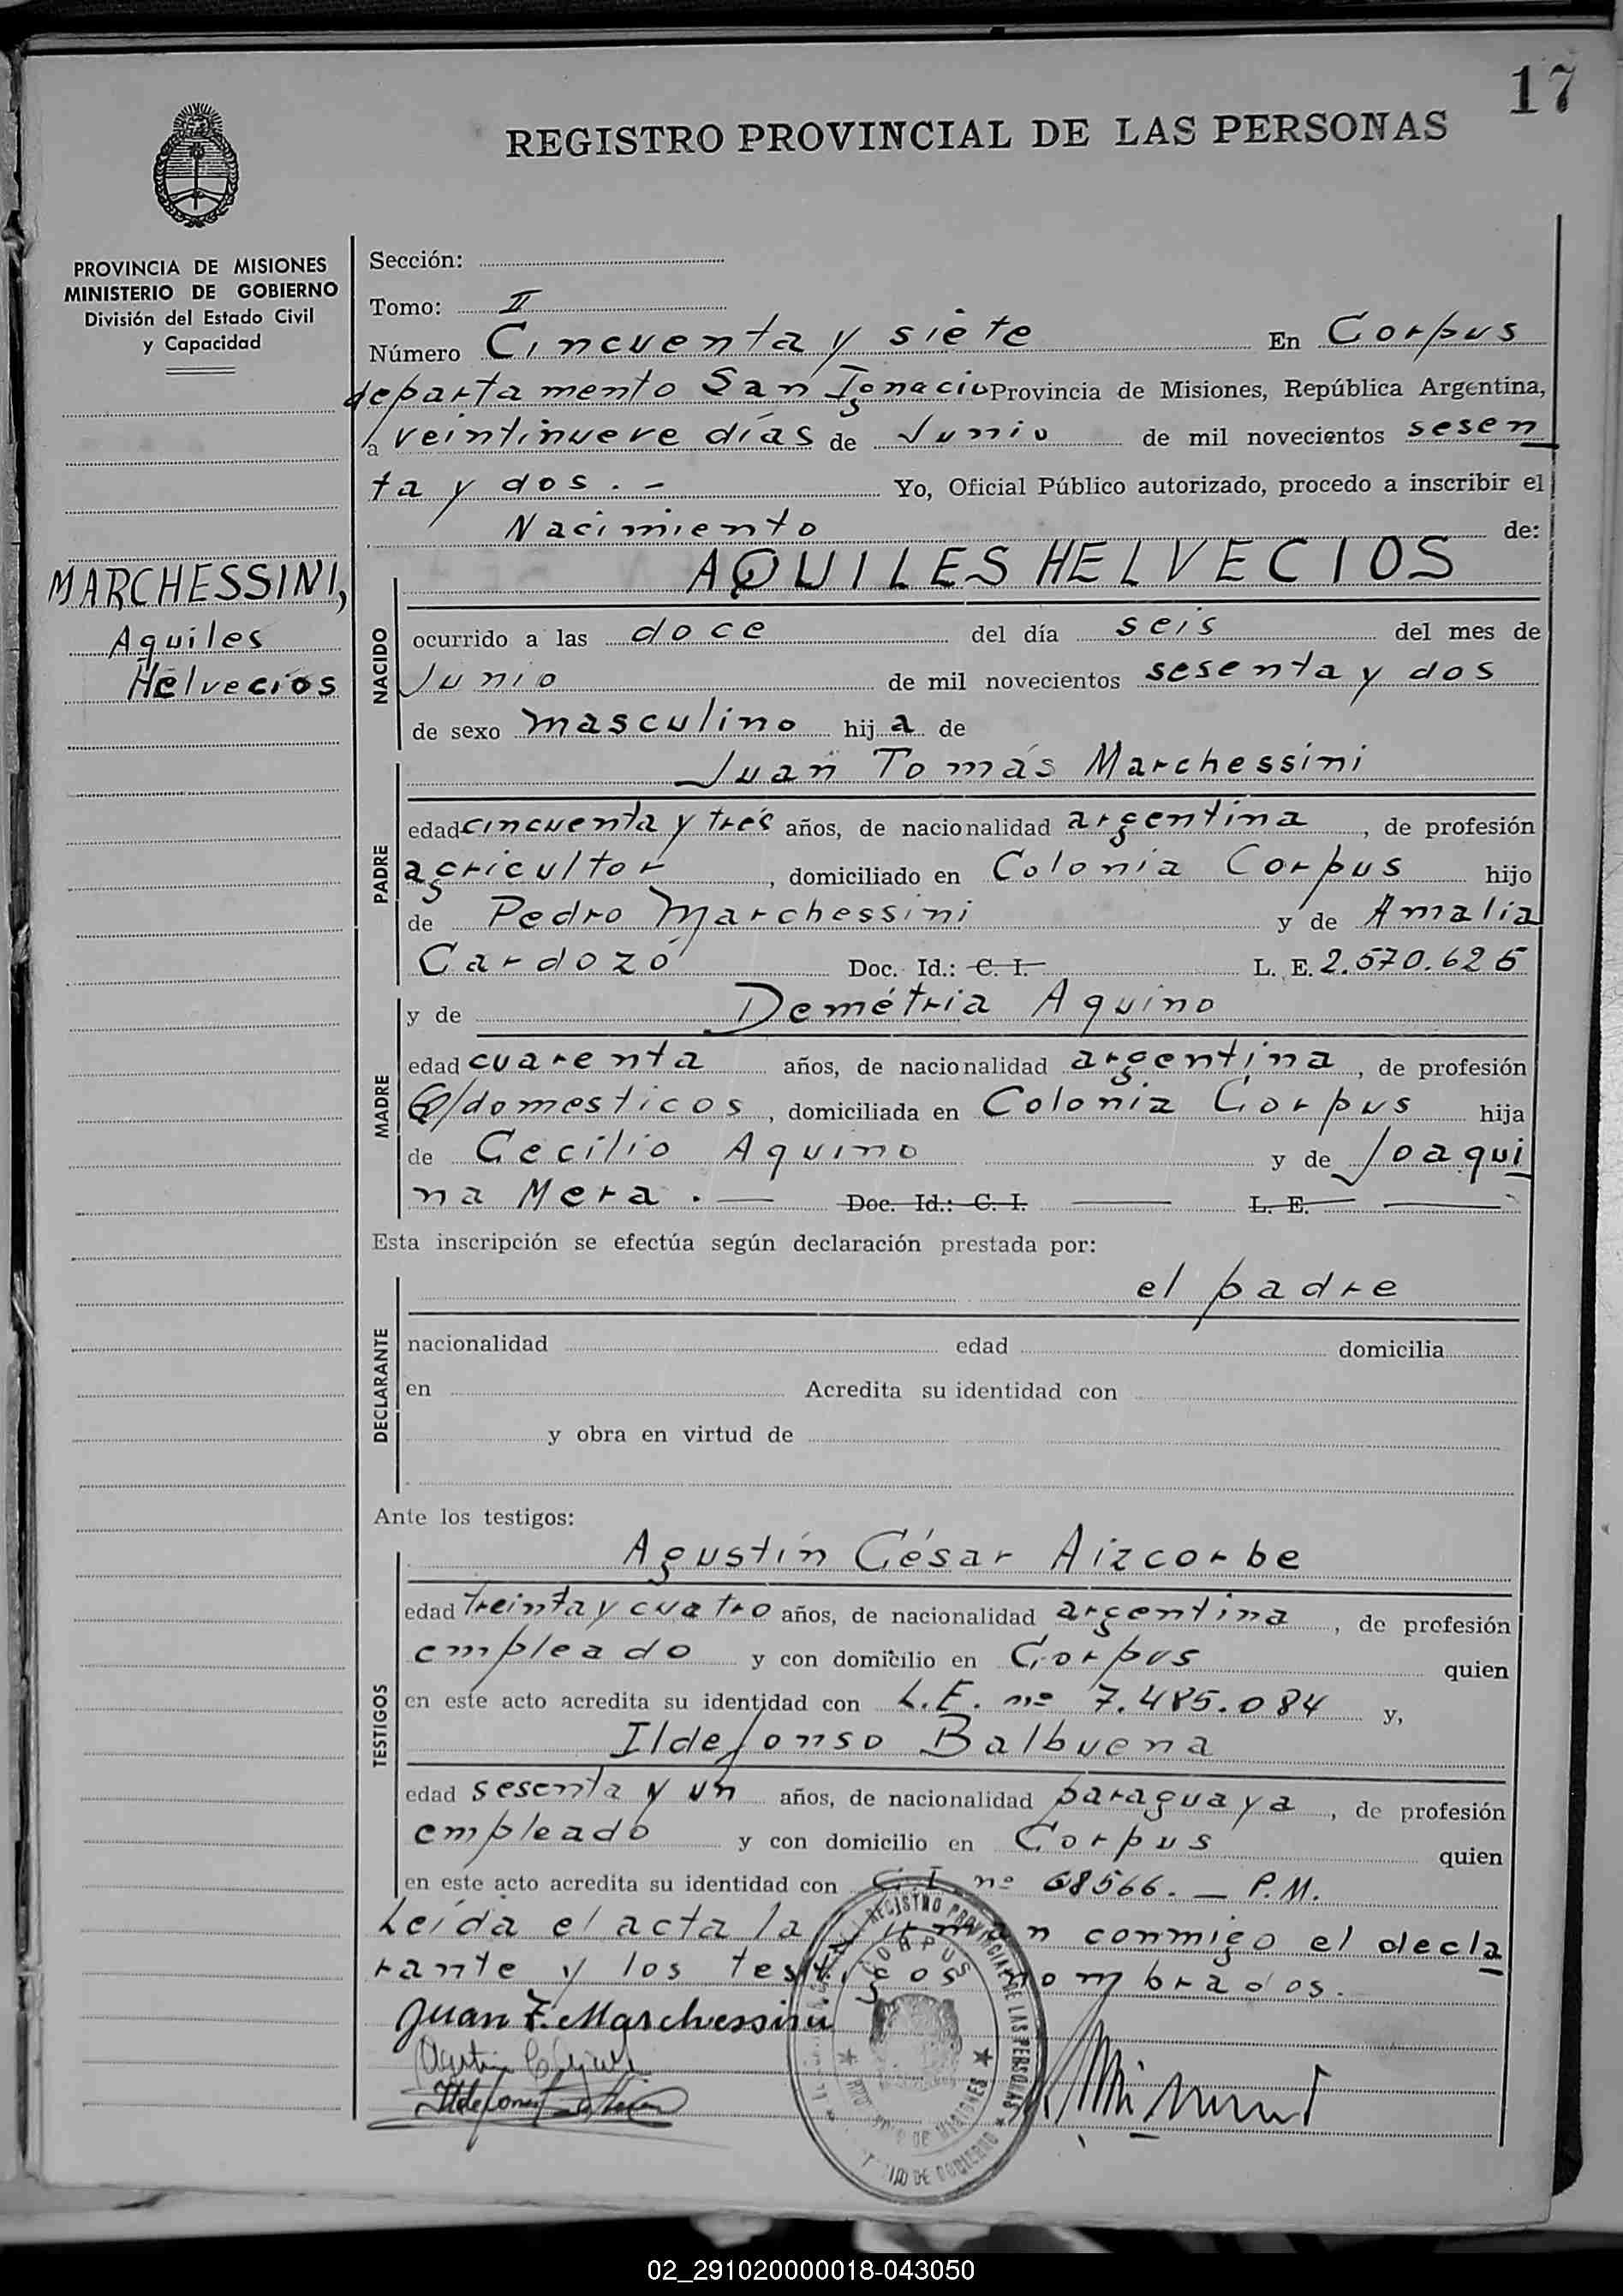 17
REGISTRO PROVINCIAL DE LAS PERSONAS
PROVINCIA DE MISIONES
MINISTERIO DE GOBIERNO
División del Estado Civil
y Capacidad
MARCHESSINI,
Aquiles
Helvecios
Sección:
Tomo: II
Número Cincuenta y siete En Corpus
departamento San Ignacio Provincia de Misiones, República Argentina,
a veintinueve días de Junio de mil novecientos sesen
ta y dos . - Yo, Oficial Público autorizado, procedo a inscribir el
Nacimiento de:
NACIDO
AQUILES HELVECIOS
ocurrido a las doce del día seis del mes de
Junio de mil novecientos sesenta y dos
de sexo masculino hij a de
PADRE
Juan Tomás Marchessini
edad cincuenta y tres años, de nacionalidad argentina, de profesión
agricultor, domiciliado en Colonia Corpus hijo
de Pedro Marchessini y de Amalia
Cardozo Doc. Id.: C. I. L. E. 2.570.625
MADRE
y de Demétria Aquino
edad cuarenta años, de nacionalidad argentina, de profesión
Q/domesticos, domiciliada en Colonia Corpus hija
de Cecilio Aquino y de Joaqui
na Mera . — Doc. Id.: C. I. — L. E. —
Esta inscripción se efectúa según declaración prestada por:
DECLARANTE
el padre
nacionalidad edad domicilia
en Acredita su identidad con
y obra en virtud de
Ante los testigos:
TESTIGOS
Agustín César Aizcorbe
edad treinta y cuatro años, de nacionalidad argentina, de profesión
empleado y con domicilio en Corpus quien
en este acto acredita su identidad con L.E. nº 7.485.084 y,
Ildefonso Balbuena
edad sesenta y un años, de nacionalidad paraguaya, de profesión
empleado y con domicilio en Corpus quien
en este acto acredita su identidad con C.I. nº 68566. — P.M.
Leída el acta la firman conmigo el decla
rante y los testigos nombrados.
Juan T. Marchessini
REGISTRO PROVINCIAL DE LAS PERSONAS
CORPUS
DE MISIONES
DE GOBIERNO
02_291020000018-043050